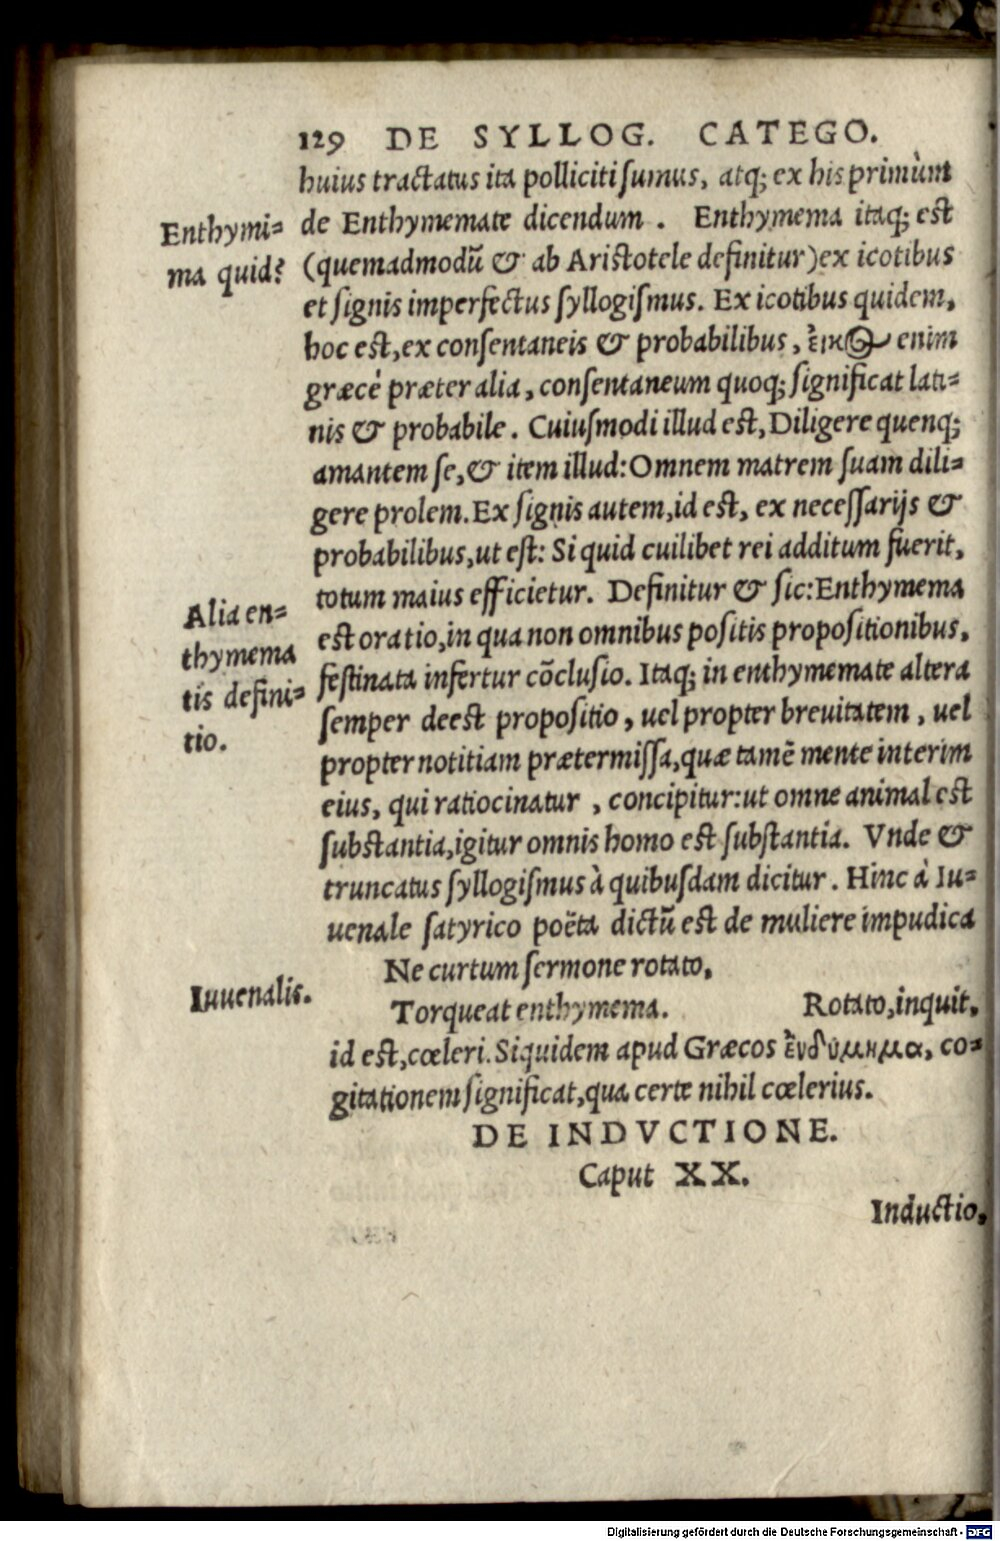 129 DE SYLLOG. CATEGO.
huius tractatus ita polliciti sumus, atq; ex his primùm
de Enthymemate dicendum. Enthymema itaq; est
(quemadmodū & ab Aristotele definitur) ex icotibus
et signis imperfectus syllogismus. Ex icotibus quidem,
hoc est, ex consentaneis & probabilibus, ἐικὸς enim
græcè præter alia, consentaneum quoq; significat lati-
nis & probabile. Cuiusmodi illud est, Diligere quenq;
amantem se, & item illud: Omnem matrem suam dili-
gere prolem. Ex signis autem, id est, ex necessarijs &
probabilibus, ut est: Si quid cuilibet rei additum fuerit,
totum maius efficietur. Definitur & sic: Enthymema
est oratio, in qua non omnibus positis propositionibus,
festinata infertur cōclusio. Itaq; in enthymemate altera
semper deest propositio, uel propter breuitatem, uel
propter notitiam prætermissa, quæ tamē mente interim
eius, qui ratiocinatur, concipitur: ut omne animal est
substantia, igitur omnis homo est substantia. Vnde &
truncatus syllogismus à quibusdam dicitur. Hinc à Iu-
uenale satyrico poëta dictū est de muliere impudica
Ne curtum sermone rotato,
Torqueat enthymema. Rotato, inquit,
id est, cœleri. Siquidem apud Græcos ἐνθύμημα, co-
gitationem significat, qua certe nihil cœlerius.
DE INDVCTIONE.
Caput XX.
Inductio,
Enthymi-
ma quid?
Alia en-
thymema
tis defini-
tio.
Iuuenalis.
Digitalisierung gefördert durch die Deutsche Forschungsgemeinschaft - DFG